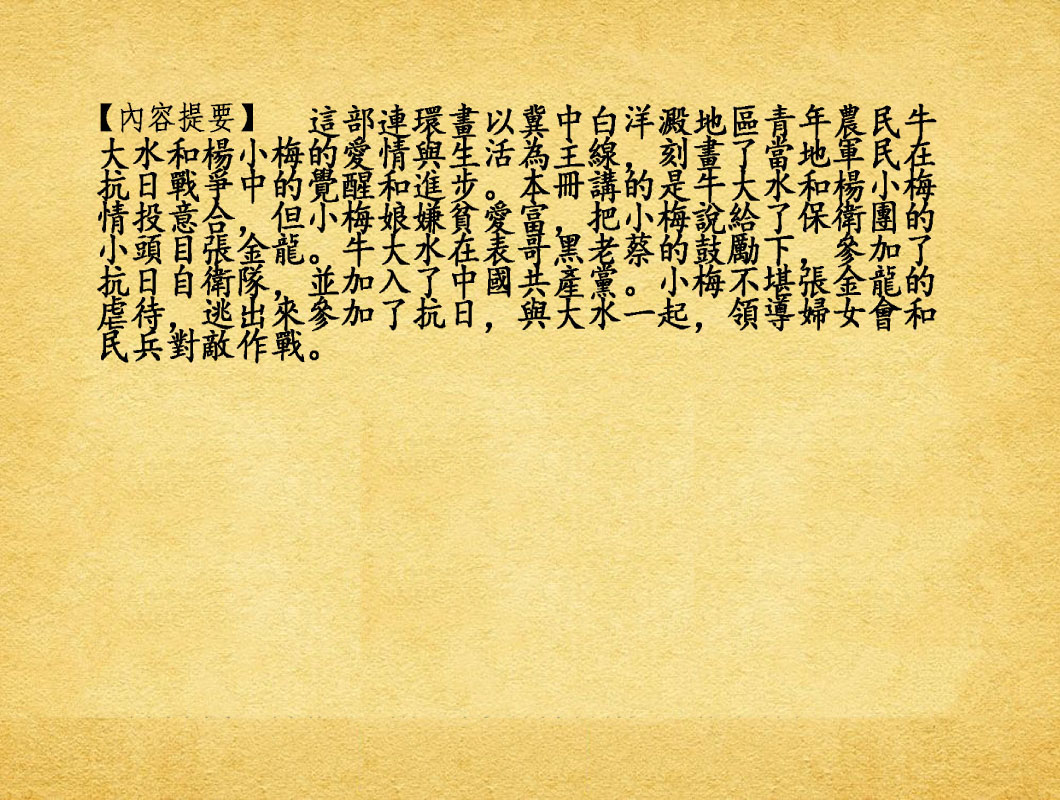 【內容提要】 這部連環畫以冀中白洋澱地區青年農民牛
大水和楊小梅的愛情與生活為主線，刻畫了當地軍民在
抗日戰爭中的覺醒和進步。本冊講的是牛大水和楊小梅
情投意合，但小梅娘嫌貧愛富，把小梅說給了保衛團的
小頭目張金龍。牛大水在表哥黑老蔡的鼓勵下，參加了
抗日自衛隊，並加入了中國共產黨。小梅不堪張金龍的
虐待，逃出來參加了抗日，與大水一起，領導婦女會和
民兵對敵作戰。